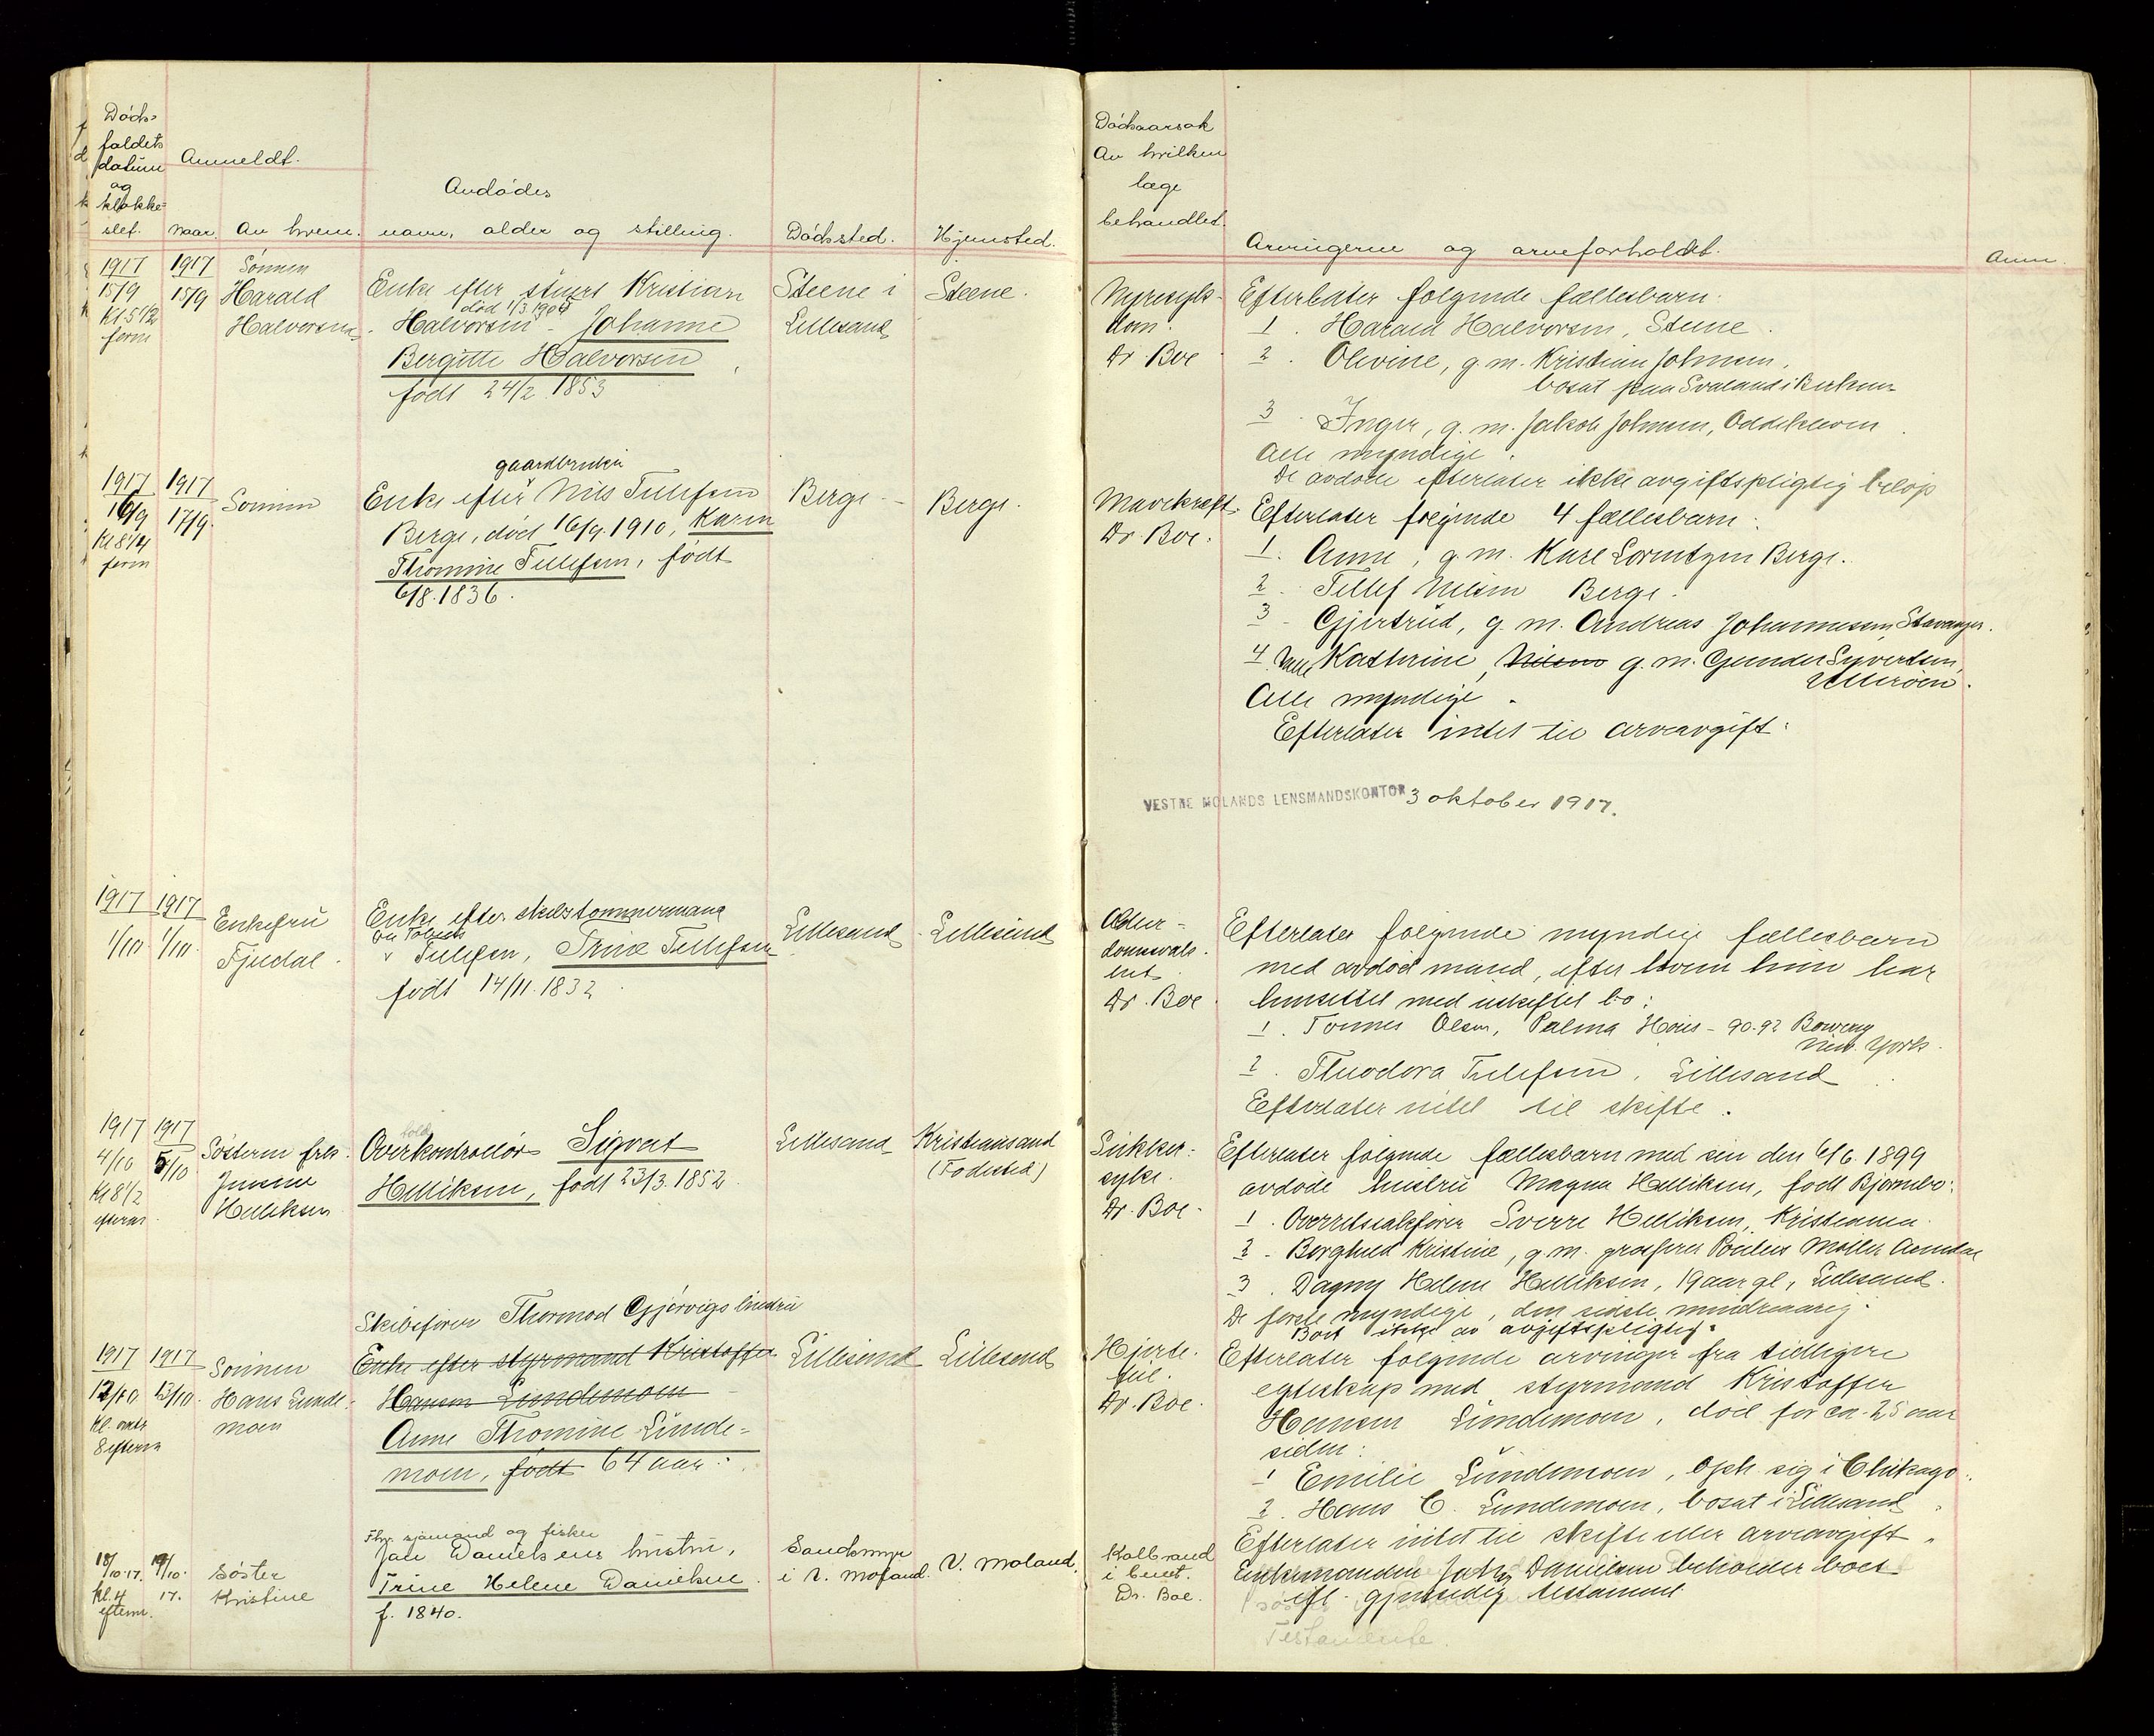 Døds-
faldets
datum
og
klokke-
slet.
Anmeldt.
naar.
Av hvem.
Avdødes
navn, alder og stilling.
Dødssted.
Hjemsted.
Dødsaarsak
Av hvilken
læge
behandlet.
Arvingerne og arveforholdet.
Anm.
1917
15/9
Kl. 5 1/2
form
1917
15/9
Sønnen
Harald
Halvorsen
Enke efter stuert Kristian
død 1/3 1905
Halvorsen - Johanne
Bergitte Halvorsen,
født 24/2 1853
Steene i
Lillesand
Steene.
Nyresyk-
dom.
Dr. Boe
Efterlater følgende fællesbarn:
1. Harald Halvorsen, Steene.
2. Olevine, g. m. Kristian Johnsen,
bosat paa Svaland i Birkenes
3. Inger, g. m. Jakob Johnsen, Oddekleven.
Alle myndige.
De avdøde efterlater ikke avgiftspligtig beløp
1917
16/9
Kl 8 1/4
form
1917
17/9.
Sønnen
gaardbruker
Enke efter Nils Tellefsen
Berge, død 16/9. 1910, Karen
Thomine Tellefsen, født
6/8. 1836.
Berge
Berge.
Mavekræft.
Dr. Boe.
Efterlater følgende 4 fællesbarn:
1. Anne, g. m. Karl Lorentzen Berge.
2. Tellef Nilsen Berge.
3. Gjertrud, g. m. Andreas Johannesen, Stavanger.
4. Kathrine, Nilsens g. m. Gunder Syvertsen,
Alle myndige.
Efterlater intet til arveavgift:
VESTRE MOLANDS LENSMANDSKONTOR 3 oktober 1917.
1917
1/10
1917
1/10.
Enkefru
Fjeldal.
Enke efter skibstømmermand
Tellefsen, Trine Tellefsen
født 14/11. 1832.
Lillesand
Lillesand
Alder-
domssvak-
het.
Dr. Boe.
Efterlater følgende myndige fællesbarn
med avdød mand, efter hvem hun har
hensittet med uskiftet bo:
1. Tønnes Olsen, Palma House - 90.92 Bowery
New York.
2. Theodora Tellefsen, Lillesand
Efterlater intet til skifte.
1917
4/10
Kl 8 1/2
efterm.
1917
5/10
Søsteren frk.
Helliksen
told
Overkontrollør Sigvart
Helliksen, født 23/3. 1852.
Lillesand
Kristiansand
(Fødested)
Sukker-
syke.
Dr. Boe.
Efterlater følgende fællesbarn med sin den 6/6. 1899
avdøde hustru Magna Helliksen, født Bjørnebo:
1. Overretssakfører Sverre Helliksen, Kristiania.
2. Borghild Kristine, g. m. grosserer Møller Arendal
3. Dagny Helene Helliksen, 19 aar gl, Lillesand.
De første myndige, den sidste mindreaarig.
Boet ikke av avgiftspligtig.
1917
12/10
8 efterm
1917
13/10.
Sønnen
Hans Lunde-
moen
Skibsfører Thormod Gjervigs hustru
Enke efter styrmand Kristoffer
Hansen Lundemoen
Anne Thomine Lunde-
moen, født 64 aar.
Lillesand
Lillesand
Hjerte-
feil.
Dr. Boe.
Efterlater følgende arvinger fra tidligere
egteskap med styrmand Kristoffer
Hansen Lundemoen, død for ca. 25 aar
siden:
1 Emilie Lundemoen, oph. sig i Chikago.
2. Hans C. Lundemoen, bosat i Lillesand.
Efterlater intet til skifte eller arveavgift.
18/10.17.
kl. 4
efterm.
19/10.
17.
Søster
Kristine
Fhv. sjømand og fisker
Danielsens hustru,
Trine Helene Danielsen.
f. 1840.
Sandsmyr
i V. Moland.
V. Moland.
Kolbrand
i benet.
Dr. Boe.
Enkemanden Danielsen beholder boet
efl. gjensidig testament
Testamente.